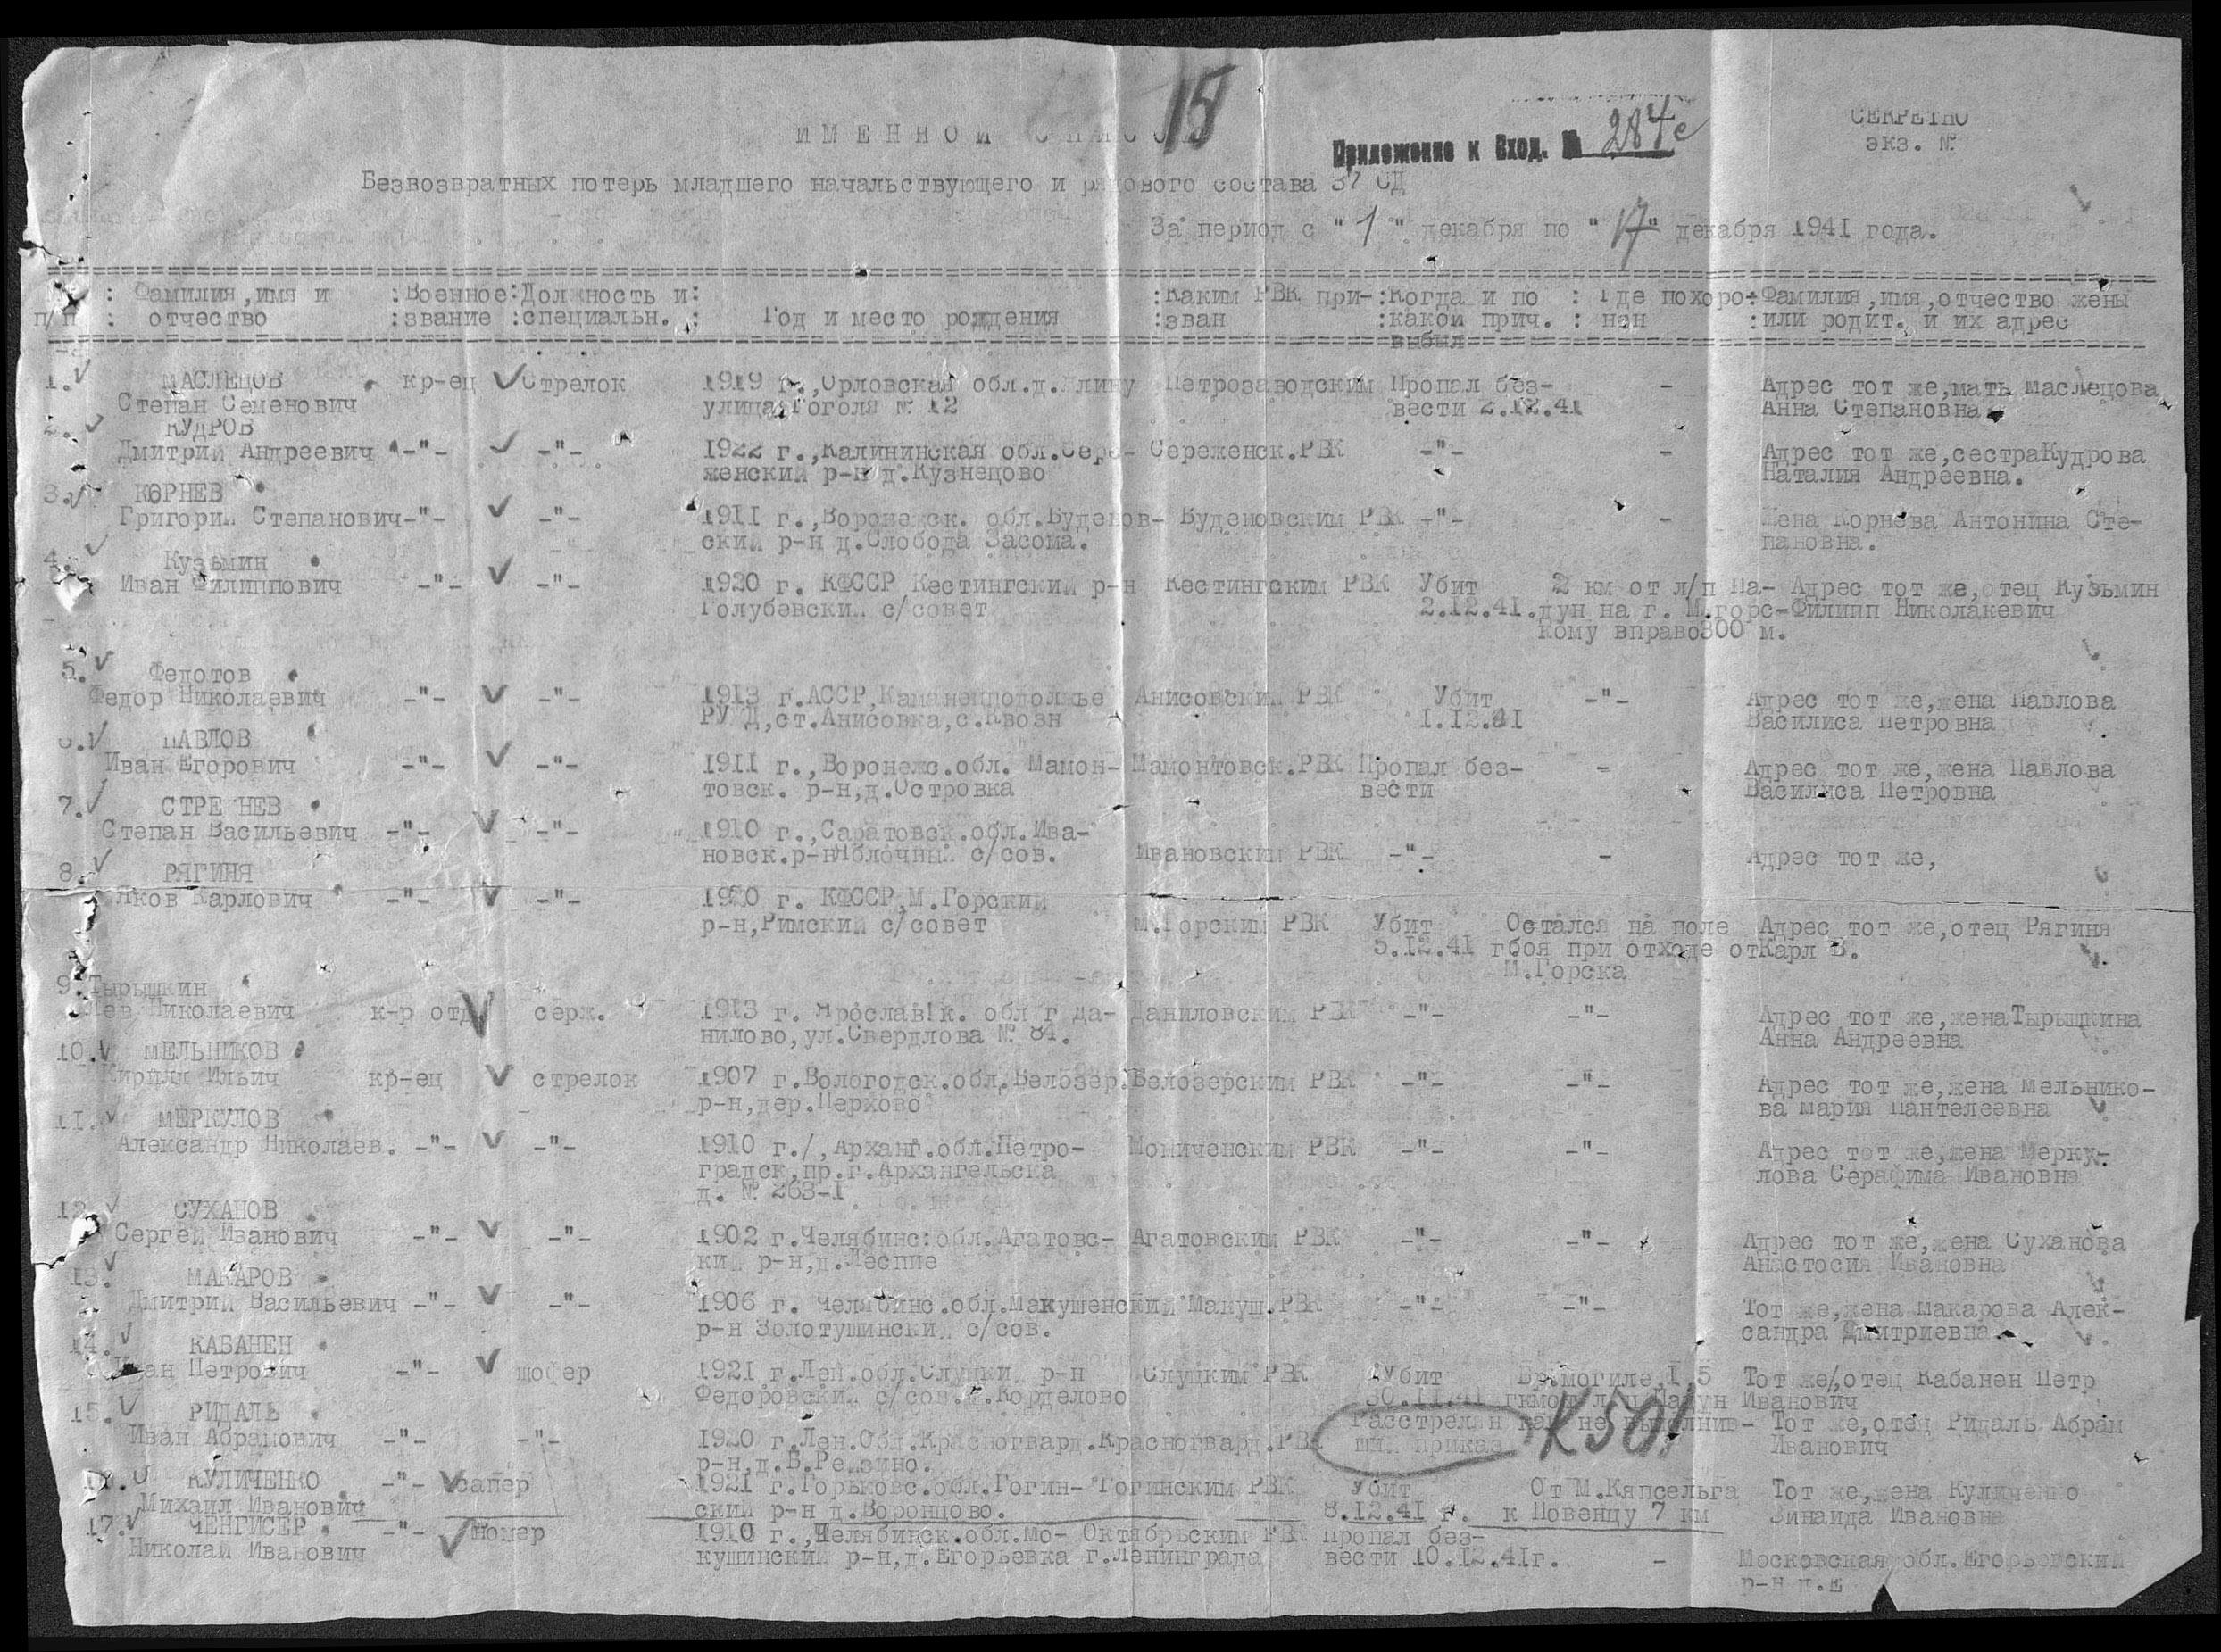 15
ИМЕННОЙ
Приложение к Вход. № 284с
СЕКРЕТНО
экз. №
Безвозвратных потерь младшего начальствующего и рядового состава 37 СД
За период с "1" декабря по "17" декабря 1941 года.
п/п : Фамилия,имя и отчество : Военное звание : Должность и специальн. : Год и место рождения : Каким РВК призван : Когда и по какой прич. выбыл : Где похоронен : Фамилия,имя,отчество жены или родит. и их адрес
1. МАСЛЕЦОВ кр-ец Стрелок 1919 г.,Орловская обл.д. Петрозаводским Пропал без- - Адрес тот же,мать Маслецова
Степан Семенович улица Гоголя № 12 вести 2.12.41 Анна Степановна
2. КУДРОВ
Дмитрий Андреевич -"- -"- 1922 г.,Калининская обл.Сере- Сереженск.РВК -"- - Адрес тот же,сестраКудрова
женский р-н д.Кузнецово Наталия Андреевна.
3. КОРНЕВ
Григорий Степанович-"- -"- 1911 г.,Воронежск. обл.Буденов- Буденовским РВК -"- - Жена Корнева Антонина Сте-
ский р-н д.Слобода Засома. пановна.
4. Кузьмин
Иван Филиппович -"- -"- 1920 г. КФССР Кестингский р-н Кестингским РВК Убит 2 км от л/п Па- Адрес тот же,отец Кузьмин
Голубевский с/совет 2.12.41. дун на г. М.горс- Филипп Николакевич
кому вправо300 м.
5. Федотов
Федор Николаевич -"- -"- 1913 г.АССР, Анисовский РВК Убит -"- Адрес тот же,жена Павлова
ст.Анисовка,с.Квозн 1.12.41 Василиса Петровна
6. ПАВЛОВ
Иван Егорович -"- -"- 1911 г.,Воронежс.обл. Мамон- Мамонтовск.РВК Пропал без- - Адрес тот же,жена Павлова
товск. р-н,д.Островка вести Василиса Петровна
7. СТРЕ НЕВ
Степан Васильевич -"- -"- 1910 г.,Саратовск.обл.Ива-
новск.р-нЯблочный с/сов. Ивановский РВК -"- - Адрес тот же,
8. РЯГИНЯ
Яков Карлович -"- -"- 1920 г. КФССР,М.Горский
р-н,Римский с/совет М.Горским РВК Убит Остался на поле Адрес тот же,отец Рягиня
5.12.41 г боя при отходе от Карл В.
М.Горска
9. Тырышкин
Лев Николаевич к-р отд серж. 1913 г. Ярославск. обл г Да- Даниловским РВК -"- -"- Адрес тот же,женаТырышкина
нилово,ул.Свердлова № 84. Анна Андреевна
10. МЕЛЬНИКОВ
Кирилл Ильич кр-ец стрелок 1907 г.Вологодск.обл.Белозер. Белозерским РВК -"- -"- Адрес тот же,жена Мельнико-
р-н,дер.Перхово ва Мария Пантелеевна
11. МЕРКУЛОВ
Александр Николаев. -"- -"- 1910 г./,Арханг.обл.Петро- Мониченским РВК -"- -"- Адрес тот же,жена Мерку-
градск,пр.г.Архангельска лова Серафима Ивановна
д. № 263-1
12. СУХАНОВ
Сергей Иванович -"- -"- 1902 г.Челябинс:обл.Агатовс- Агатовским РВК -"- -"- Адрес тот же,жена Суханова
ки р-н,д.Леспие Анастосия Ивановна
13. МАКАРОВ
Дмитрий Васильевич -"- -"- 1906 г. Челябинс.обл.Макушенский Макуш.РВК -"- -"- Тот же,жена Макарова Алек-
р-н Золотушински с/сов. сандра Дмитриевна
14. КАБАНЕН
Иван Петрович -"- шофер 1921 г.Лен.обл.Слуцки р-н Слуцким РВК Убит Бр.могиле,1,5 Тот же/,отец Кабанен Петр
Федоровский с/сов.д.Корделово 30.11.41 г Иванович
15. РИДАЛЬ Расстрелян как не выполнив- Тот же,отец Ридаль Абрам
Иван Абрамович -"- -"- 1920 г.Лен.Обл.Красногвард. Красногвард.РВК ший приказ К501 Иванович
р-н,д.В.Резино.
16. КУЛИЧЕНКО -"- сапер 1921 г.Горьковс.обл.Гогин- Гогинским РВК Убит От М.Кяпсельга Тот же,жена Куличенко
Михаил Иванович ский р-н д.Воронцово. 8.12.41 г. к Повенцу 7 км Зинаида Ивановна
17. ЧЕНГИСЕР -"- 1910 г.,Челябинск.обл.Мо- Октябрьским РВК Пропал без-
Николай Иванович кушинский р-н,д.Егорьевка г.Ленинграда вести 10.12.41г. - Московская обл.Егорьевский
р-н д.Е